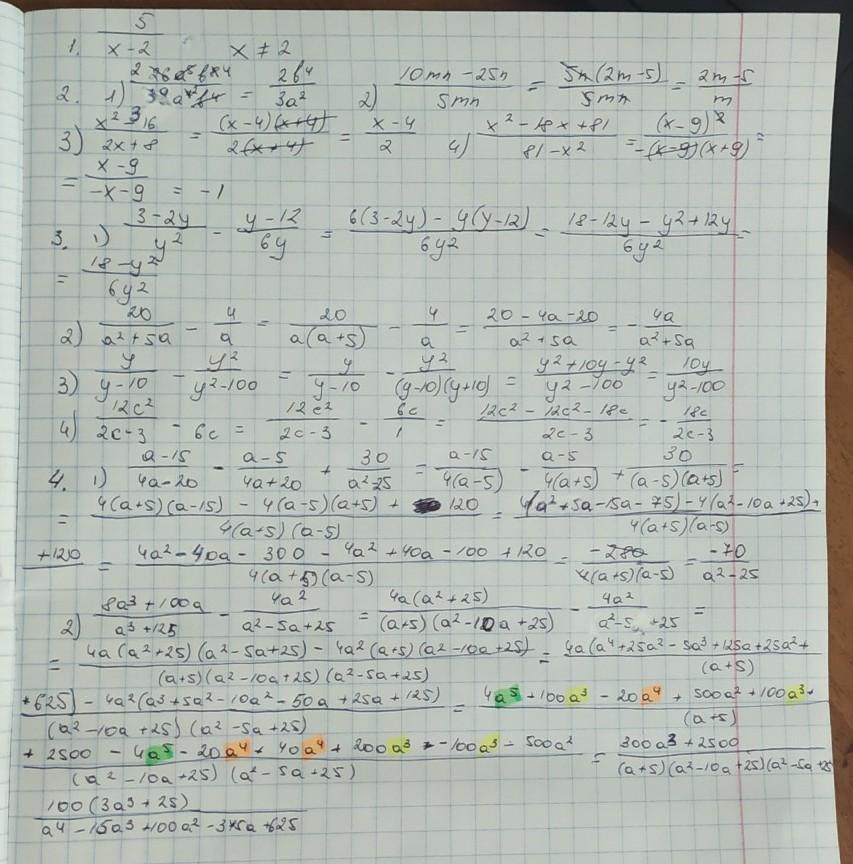 1. 5/(x-2) x ≠ 2
2. 1) = 2b⁴/3a² 2) (10mn - 25n)/5mn = 5n(2m-5)/5mn = (2m-5)/m
3) (x² - 16)/(2x+8) = (x-4)(x+4)/2(x+4) = (x-4)/2 4) (x² - 18x + 81)/(81-x²) = (x-9)²/-(x-9)(x+9) =
= (x-9)/(-x-9) = -1
3. 1) (3-2y)/y² - (y-12)/6y = (6(3-2y) - y(y-12))/6y² = (18-12y - y² + 12y)/6y² =
= (18-y²)/6y²
2) 20/(a²+5a) - 4/a = 20/a(a+5) - 4/a = (20 - 4a - 20)/(a²+5a) = - 4a/(a²+5a)
3) y/(y-10) - y²/(y²-100) = y/(y-10) - y²/(y-10)(y+10) = (y²+10y-y²)/(y²-100) = 10y/(y²-100)
4) 12c²/(2c-3) - 6c = 12c²/(2c-3) - 6c/1 = (12c² - 12c² - 18c)/(2c-3) = - 18c/(2c-3)
4. 1) (a-15)/(4a-20) - (a-5)/(4a+20) + 30/(a²-25) = (a-15)/4(a-5) - (a-5)/4(a+5) + 30/(a-5)(a+5) =
= (4(a+5)(a-15) - 4(a-5)(a+5) + 120)/4(a+5)(a-5) = (4(a²+5a-15a-75) - 4(a²-10a+25)+)/4(a+5)(a-5)
+120 = (4a² - 40a - 300 - 4a² + 40a - 100 + 120)/4(a+5)(a-5) = -280/4(a+5)(a-5) = -70/(a²-25)
2) (8a³+100a)/(a³+125) - 4a²/(a²-5a+25) = 4a(a²+25)/(a+5)(a²-10a+25) - 4a²/(a²-5 +25) =
= (4a(a²+25)(a²-5a+25) - 4a²(a+5)(a²-10a+25))/(a+5)(a²-10a+25)(a²-5a+25) = 4a(a⁴+25a²-5a³+125a+25a²+/(a+5)
+625) - 4a²(a³+5a²-10a²-50a+25a+125)/(a²-10a+25)(a²-5a+25) = 4a⁵+100a³-20a⁴+500a²+100a³+/(a+5)
+2500 - 4a⁵ - 20a⁴ + 40a⁴ + 200a³ - 100a³ - 500a²/(a²-10a+25)(a²-5a+25) = (300a³+2500)/(a+5)(a²-10a+25)(a²-5a+25
100(3a³+25)/(a⁴-15a³+100a²-375a+625)